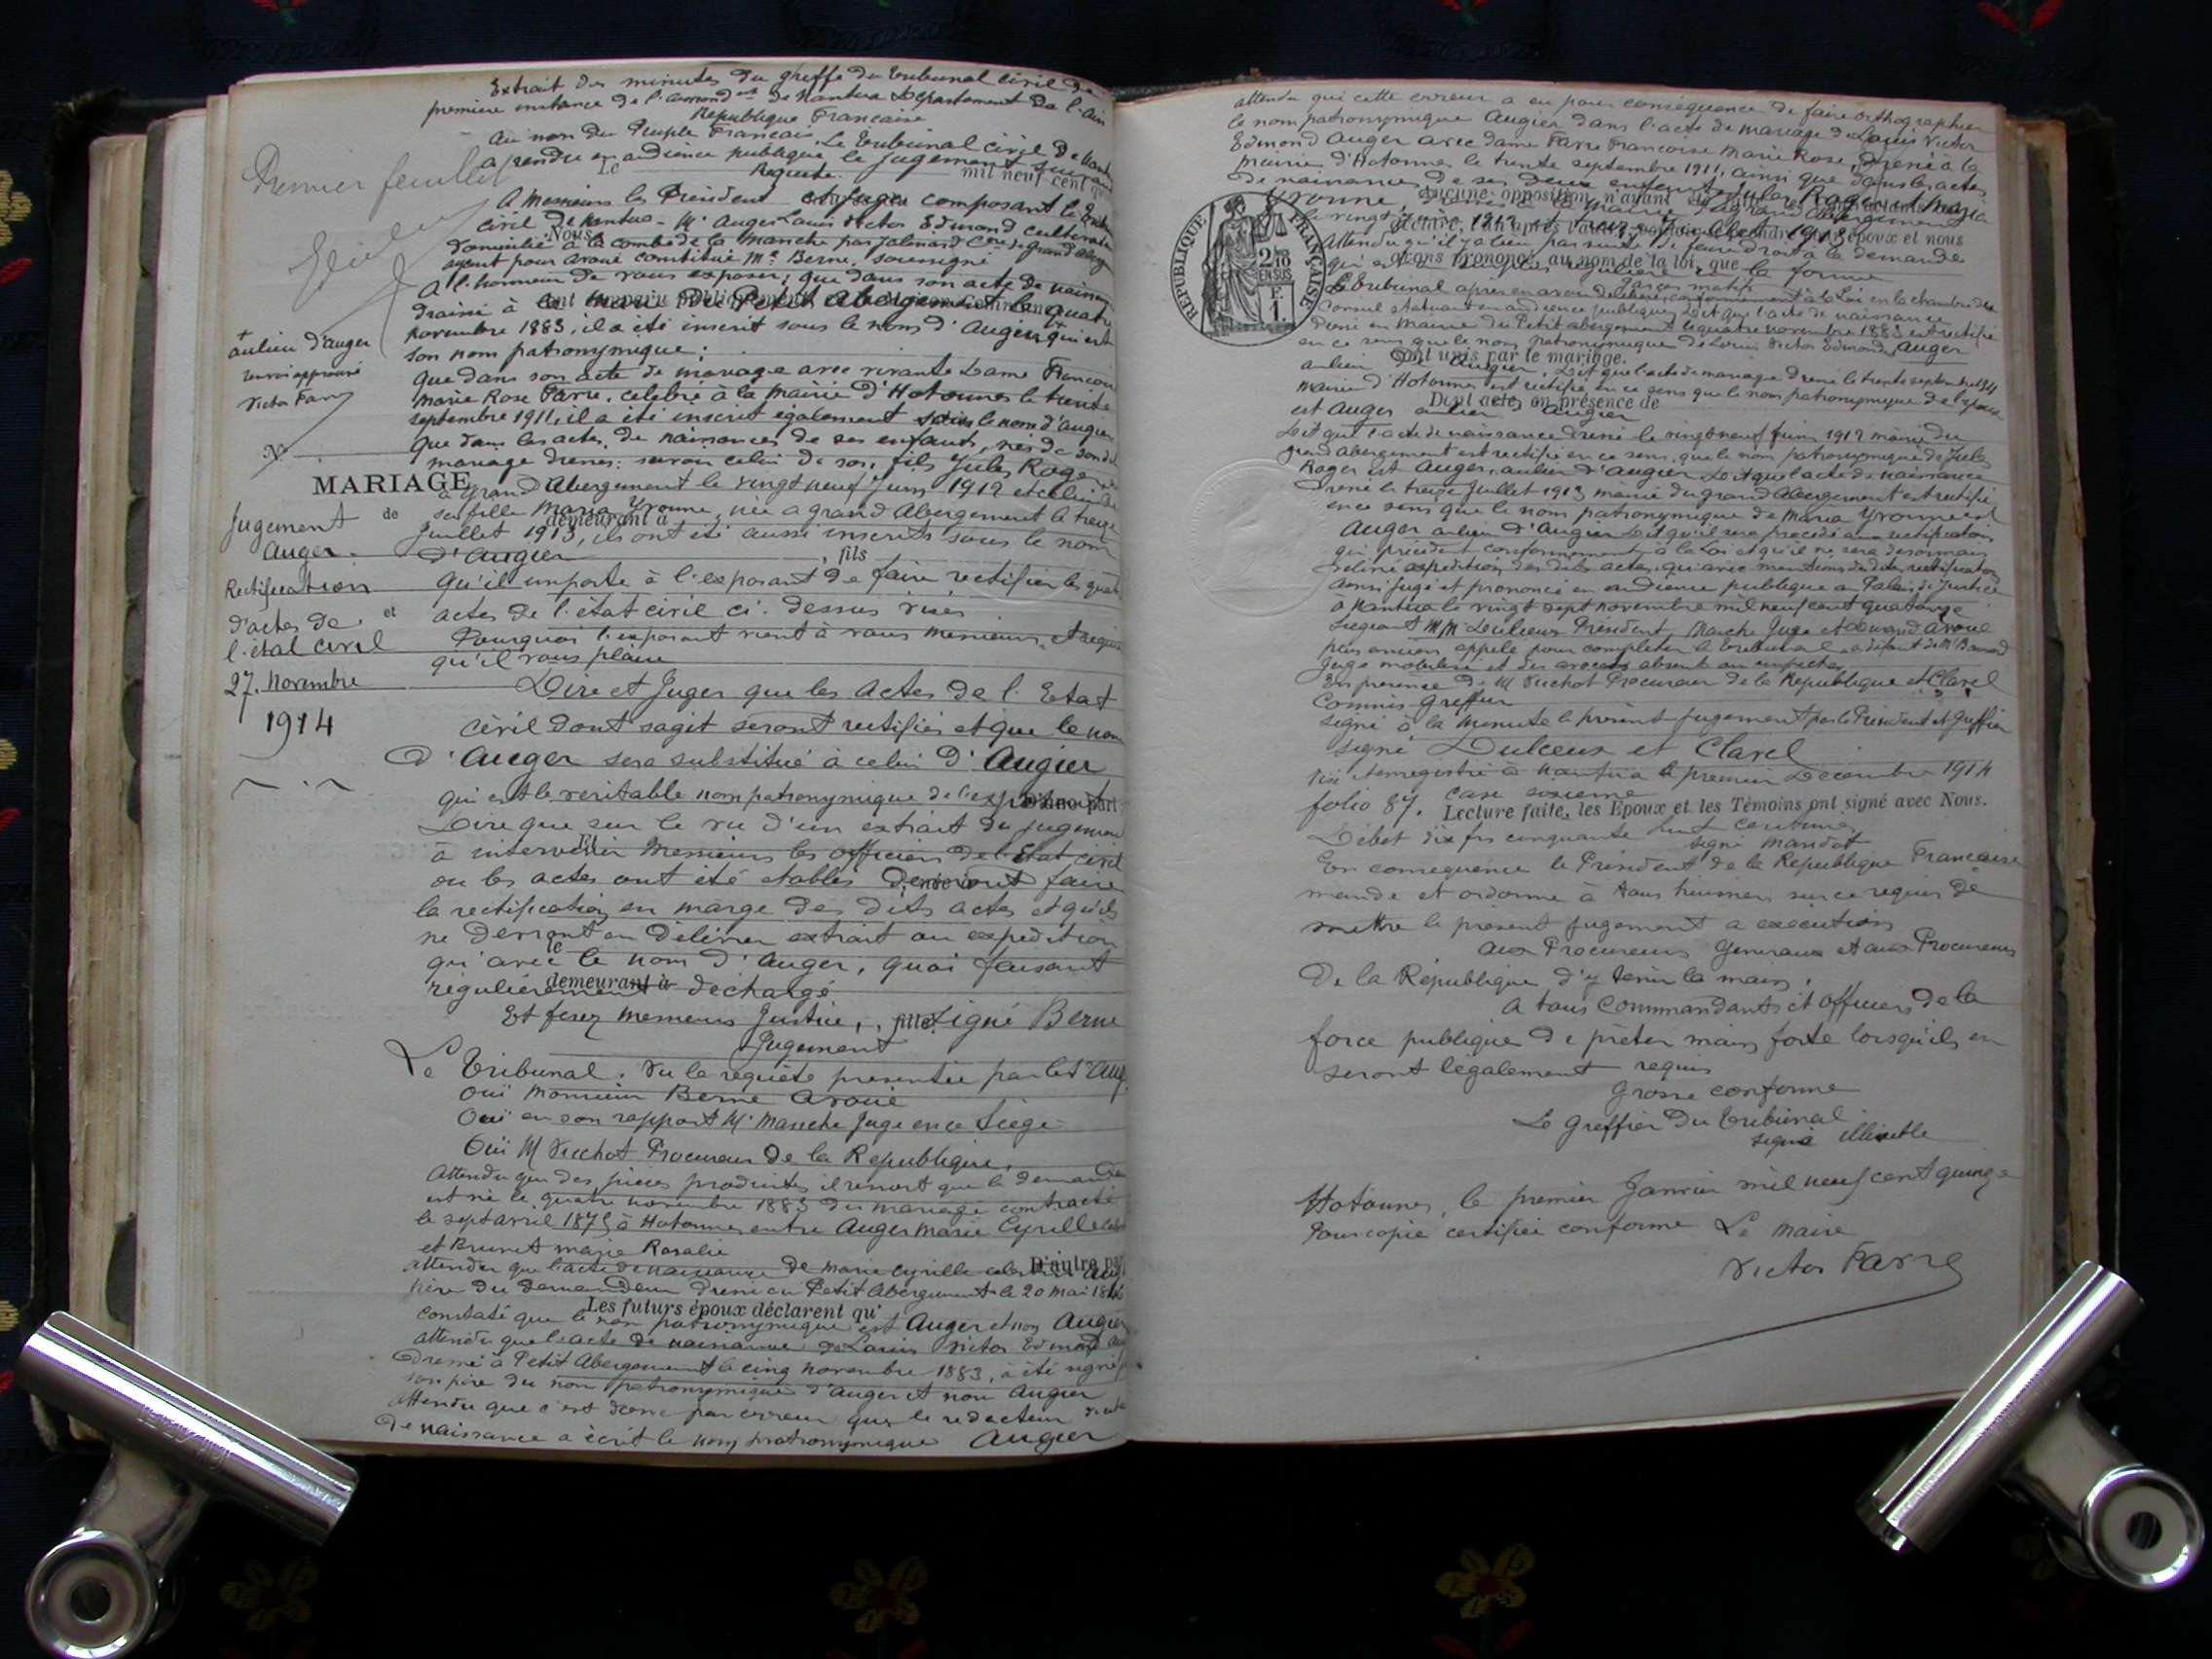 Extrait des minutes du greffe du tribunal civil de
première instance de l'arrond.nt de Nantua Département de l'Ain
République Française
Au nom du Peuple Francais. Le Tribunal civil de
a rendu en audience publique le jugement suivant
Requête.
Le mil neuf cent
Premier feuillet
A Messieurs les Président et Juges composant le
civil de Nantua - Mr Auger Louis Victor Edmond cultivateur
Nous
domicilié à la combe de la Manche par
ayant pour avoué constitué Me Berne, soussigné
A l'honneur de vous exposer; que dans son acte de
dressé à Petit Abergement le quatre
novembre 1883, il a été inscrit sous le nom d'Augier qui est
son nom patronymique;
+
au lieu d'auger
renvoi approuvé
Victor Farre
que dans son acte de mariage avec vivante Dame
Marie Rose Farre, célébré à la mairie d'Hotonnes le trente
septembre 1911, il a été inscrit egalement sous le nom d'augier
Que dans les actes de naissances de ses enfants, nés de son dit
mariage dressés: savoir celui de son fils Jules Roger
No
MARIAGE
de
à grand Abergement le vingt neuf Juin 1912 et celui de
sa fille Maria Yvonne, née a grand Abergement le treize
demeurant à
Juillet 1913, ils ont été aussi inscrits sous le nom
d'Augier
, fils
Jugement
Auger.
Rectification
d'actes de
et
l'état civil
27. Novembre
1914
Qu'il importe à l'exposant de faire rectifier les
actes de l'état civil ci-dessus visés
Pourquoi l'exposant vient à vous Messieurs,
qu'il vous plaise
Dire et Juger que les actes de l'Etat
civil dont sagit seront rectifiés et que le nom
d'Auger sera substitué à celui d'Augier
qui est le véritable nom patronymique de
D'une part
Dire que sur le vu d'un extrait du jugement
Et
à intervenir Messieurs les officiers de l'Etat civil
ou les actes ont été etablis devront faire
la rectification en marge des dits actes et qu'ils
ne devront en délivrer extrait ou expedition
le
qu'avec le nom d'Auger, quoi faisant
demeurant à
régulièrement déchargé
Et ferez Messieurs Justice, signé Berne
fille
Jugement
Le Tribunal. Vu la requête presentée par le Sr
Ouï Monsieur Berne avoué
Ouï en son rapport Mr Manche Juge en ce Siège
Ouï M Vuchot Procureur de la République,
Attendu que des pièces produites il ressort que le
est né le quatre novembre 1883 du mariage contracté
le sept avril 1875 à Hotonnes entre Auger Marie Cyrille
et Brunet marie Rosalie
D'autre part
attendu que l'acte de naissance de Marie Cyrille
père du demandeur dressé au Petit Abergement le 20 mai
Les futurs époux déclarent qu'
constaté que le nom patronymique est Auger et non Augier
attendu que l'acte de naissance de Louis Victor Edmond
dressé à Petit Abergement le cinq novembre 1883, a été signé
son père du nom patronymique d'Auger et non Augier
Attendu que c'est donc par erreur que le redacteur
de naissance a écrit le nom patronymique Augier
attendu que cette erreur a eu pour conséquence de faire orthographier
le nom patronymique Augier dans l'acte de mariage de Louis Victor
Edmond Auger avec dame Farre Francoise Marie Rose, dressé à la
mairie d'Hotonnes le trente septembre 1911, ainsi que dans les actes
de naissances de ses deux enfants Jules Roger et Maria
Yvonne,
Aucune opposition n'ayant
Attendu qu'il y a lieu par suite de faire droit à la demande
époux et nous
avons prononcé, au nom de la loi, que
qui est régulière en la forme
Par ces motifs
RÉPUBLIQUE FRANÇAISE
2/10
EN SUS
F.
1.
Le tribunal après en avoir délibéré, conformément à la Loi en la chambre du
Conseil statuant en audience publique, Dit que l'acte de naissance
dressé en Mairie du Petit abergement le quatre novembre 1883 est rectifié
en ce sens que le nom patronymique de Louis Victor Edmond est Auger
sont unis par le mariage.
au lieu de Augier, Dit que l'acte de mariage dressé le trente septembre 1911
Mairie d'Hotonnes est rectifié en ce sens que le nom patronymique de l'époux
Dont acte, en présence de
est Auger au lieu d'Augier
Dit que l'acte de naissance dressé le vingt neuf juin 1912 mairie du
grand abergement est rectifié en ce sens, que le nom patronymique de Jules
Roger est Auger, au lieu d'Augier Dit que l'acte de naissance
dressé le treize Juillet 1913 mairie du grand Abergement est rectifié
en ce sens que le nom patronymique de Maria Yvonne est
Auger au lieu d'Augier Dit qu'il sera procédé aux rectifications
qui précèdent conformément à la Loi et qu'il ne sera désormais
délivré expédition des dits actes, qu'avec mentions des dites rectifications
Ainsi jugé et prononcé en audience publique au Palais de Justice
à Nantua le vingt sept novembre mil neuf cent quatorze
Siégeant MM Dulceux Président, Manche Juge et avoué
plus ancien appelé pour compléter le tribunal à défaut de Mr
Juge mobilisé et des avocats absent ou empêchés
En présence de M Vuchot Procureur de la République et Clarel
Commis Greffier
signé à la Minute le présent Jugement par le Président et Greffier
signé Dulceux et Clarel
Visé et enregistré à Nantua le premier Décembre 1914
folio 87. case sixieme
Lecture faite, les Epoux et les Témoins ont signé avec Nous.
Débet dix frs cinquante huit centimes
signé Mandot
En consequence le Président de la République Francaise
mande et ordonne à tous huissiers sur ce requis de
mettre le présent jugement a execution
aux Procureurs Generaux et aux Procureurs
De la République d'y tenir la main,
A tous Commandants et officiers de la
force publique de prêter main forte lorsqu'ils en
seront légalement requis
Grosse conforme
Le greffier du tribunal
signé illisible
Hotonnes, le premier Janvier mil neuf cent quinze
Pour copie certifiée conforme Le maire
Victor Farre